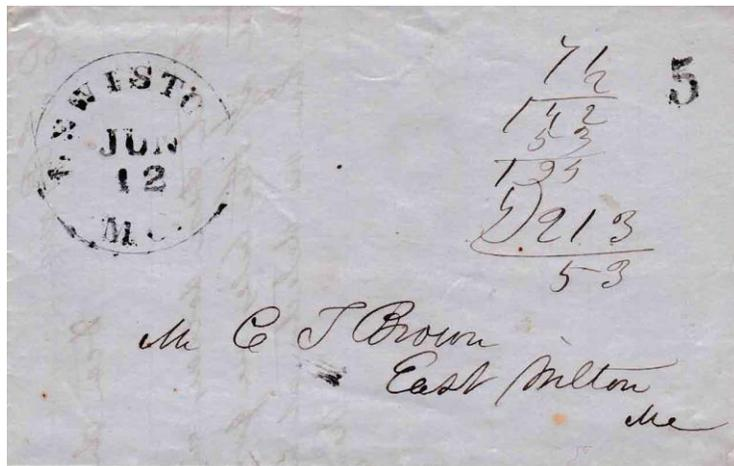 LEWISTO
JUN
12
5
7 1/2
1 4 2
5 3
4) 2 1 3
5 3
Mr C T Brown
East Wilton
Me